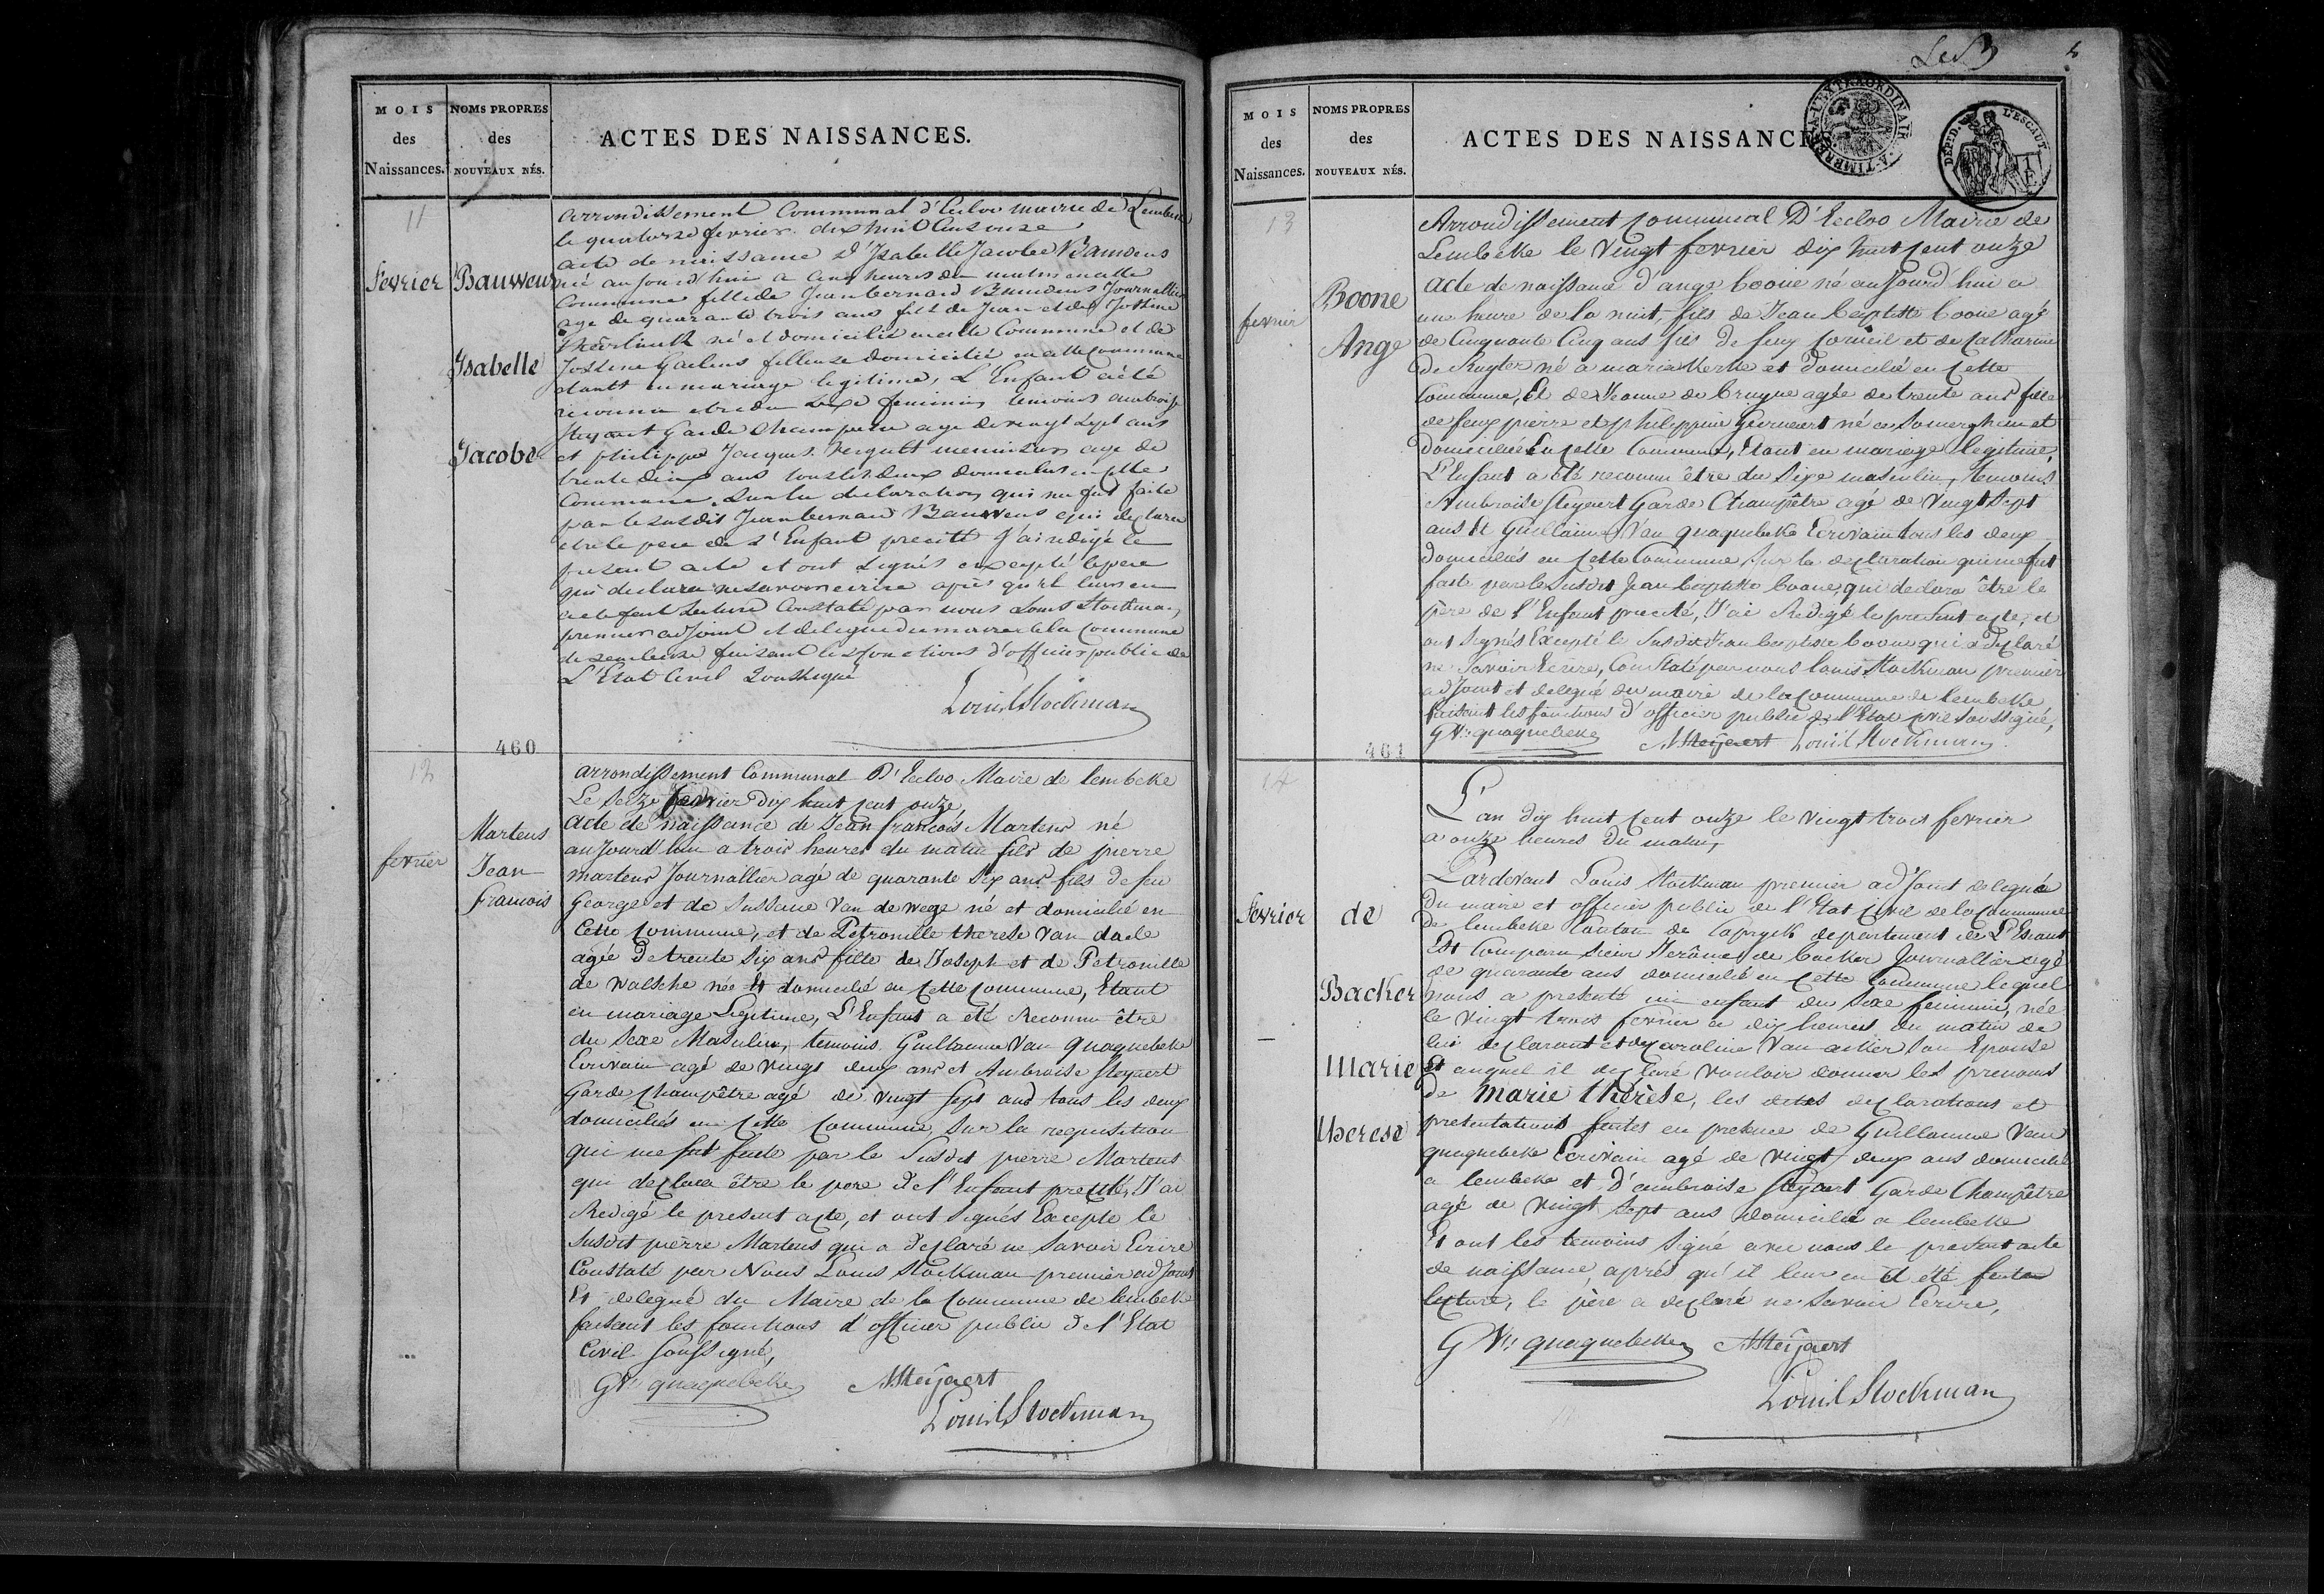 MOIS
des
Naissances.
NOMS PROPRES
des
NOUVEAUX NÉS.
ACTES DES NAISSANCES.
11
fevrier
Bauwens
Isabelle
Jacobe
arrondissement Communal d'Ecloo mairie de Lembeke
le quatorze fevrier dix huit Cent onze
acte de naissance d'Isabelle Jacobe Bauwens
né aujourd'hui a cinq heures du matin en cette
Commune fille de Jean bernard Bauwens Journallier
age de quarante trois ans fils de Jean et de Jossine
né et domicilié en cette Commune et de
Jossine fileuse domicilié en cette Commune
etant en mariage legitime, L'Enfant a été
reconnu etre du sexe feminin temoins ambroise
steyaert Garde Champetre age de vingt sept ans
et philippe Jacques menuisier age de
trente ans tous les deux domicilies en cette
Commune. Sur la declaration qui me fut faite
par le susdit Jean bernard Bauwens qui declara
etre le pere de L'Enfant precité J'ai redigé le
present acte et ont signés excepté le pere
qui declara ne savoir ecrire après qu'il leur en
a eté fait lecture Constaté par nous Louis Stockman
premier adjoint et delegué du maire de la Commune
de Lembeke faisant les fonctions d'officier public de
L'Etat Civil Soussigné
Louis Stockman
460
12
fevrier
Martens
Jean
francois
arrondissement Communal D'Ecloo Mairie de lembeke
Le Seize fevrier Dix huit cent onze,
acte de naissance de Jean francois Martens né
aujourd'hui a trois heures du matin fils de pierre
martens Journallier agé de quarante Six ans fils de feu
George et de Sussane Van de wege né et domicilié en
Cette Commune, et de Petronille therese Van dade
agée De trente Six ans fille de Joseph et de Petronille
de walsche née et domicilié en Cette Commune, Etant
en mariage Legitime, L'Enfant a eté Reconnu être
du Sexe Masculin, temoins Guillaume Van Quaquebeke
Ecrivain agé de vingt deux ans et Ambroise steyaert
Garde Champêtre agé de vingt sept ans tous les deux
domiciliés en Cette Commune, Sur la requisition
qui me fut faite par le Susdit pierre Martens
qui declara être le pere de l'Enfant precité, J'ai
Redigé le present acte, et ont Signés Excepte le
Susdit pierre Martens qui a declaré ne Savoir Ecrire
Constaté par Nous Louis Stockman premier adjoint
Et delegué du Maire de la Commune de lembeke
faisant les fonctions d'officier public de l'Etat
Civil Soussigné,
G Vn quaquebeke ASteÿaert
Louis Stockman
MOIS
des
Naissances.
NOMS PROPRES
des
NOUVEAUX NÉS.
ACTES DES NAISSANCES
A TIMBRER A L'EXTRAORDINAIR.
DÉPT. D. L'ESCAUT
5
13
fevrier
Boone
Ange
Arrondissement Communal D'Eecloo Mairie de
Lembeke le Vingt fevrier dix huit cent onze
acte de naissance d'ange boone né aujourd'hui a
une heure de la nuit, fils de Jean baptiste boone agé
de Cinquante Cinq ans fils de feux Corneil et de Catharine
de Ruyter né a mariakerke et domicilié en Cette
Commune, Et de Jeanne de bruyne agée de trente ans fille
de feux pierre et philippine né a Somerghem et
domiciliée en Cette Commune, Etant en mariage legitime,
L'Enfant a été reconnu être du Sexe masculin, temoins
Ambroise steyaert Garde Champêtre agé de Vingt Sept
ans Et Guillaume Van quaquebeke Ecrivain tous les deux
domiciliés en Cette Commune, Sur la declaration qui me fut
faite par le Susdit Jean baptiste boone, qui declara être le
père de l'Enfant precité, J'ai Redigé le present acte, et
ont Signés Excepté le Susdit Jean baptiste boone qui a declaré
ne Savoir Ecrire, Constaté par nous Louis Stockman premier
adjoint et delegué du maire de la Commune de lembeke
faisant les fonctions d'officier public de l'Etat civil Soussigné,
G Vn quaquebeke ASteÿaert Louis Stockman
461
14
fevrier
de
Backer
Marie
therese
L'an dix huit Cent onze le vingt trois fevrier
a onze heures du matin,
Pardevant Louis Stockman premier adjoint delegué
du maire et officier public de l'Etat civil de la Commune
De lembeke Canton de Capryck departement de L'Escaut
Est Comparu Sieur Jerôme de backer Journallier agé
de quarante ans domicilié en Cette Commune lequel
nous a presenté un enfant du Sexe feminin, née
le vingt trois fevrier a dix heures du matin de
lui declarant et de Caroline Van acker Son Epouse
Et auquel il declare vouloir donner les prenoms
De marie thérèse, les dites declarations et
presentations faites en presence de Guillaume Van
quaquebeke Ecrivain agé de vingt deux ans domicilié
a lembeke et d'ambroise steyaert Garde Champêtre
agé de vingt Sept ans domicilié a lembeke
Et ont les temoins Signé avec nous le present acte
de naissance, après qu'il leur en a été faite
lecture, le père a declaré ne Savoir Ecrire,
G Vn quaquebeke ASteÿaert
Louis Stockman